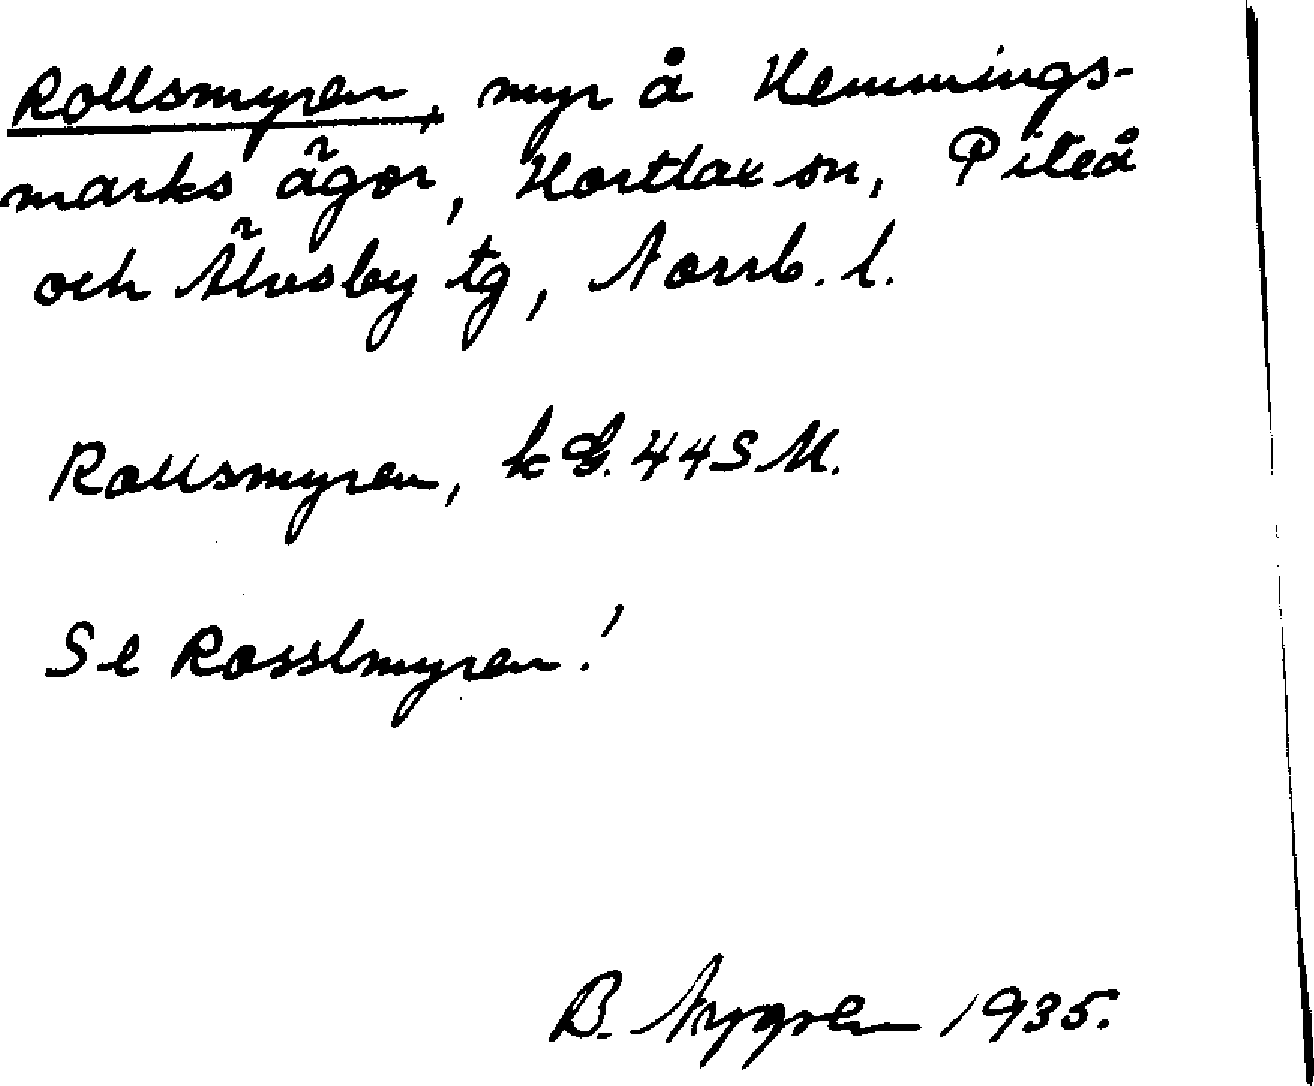 Rollsmyren, myr å Hemmings-
marks ägor, Hortlax sn, Piteå
och Älvsby tg, Norrb. l.
Rollsmyren, k G. 44 S M.
Se Rosslmyren!
B. Nygren 1935.